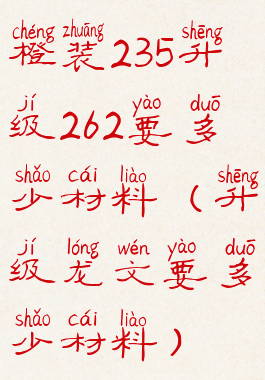 chéng zhuāng shēng
橙装235升
jí yào duō
级262要多
shǎo cái liào shēng
少材料（升
jí lóng wén yào duō
级龙文要多
shǎo cái liào
少材料）